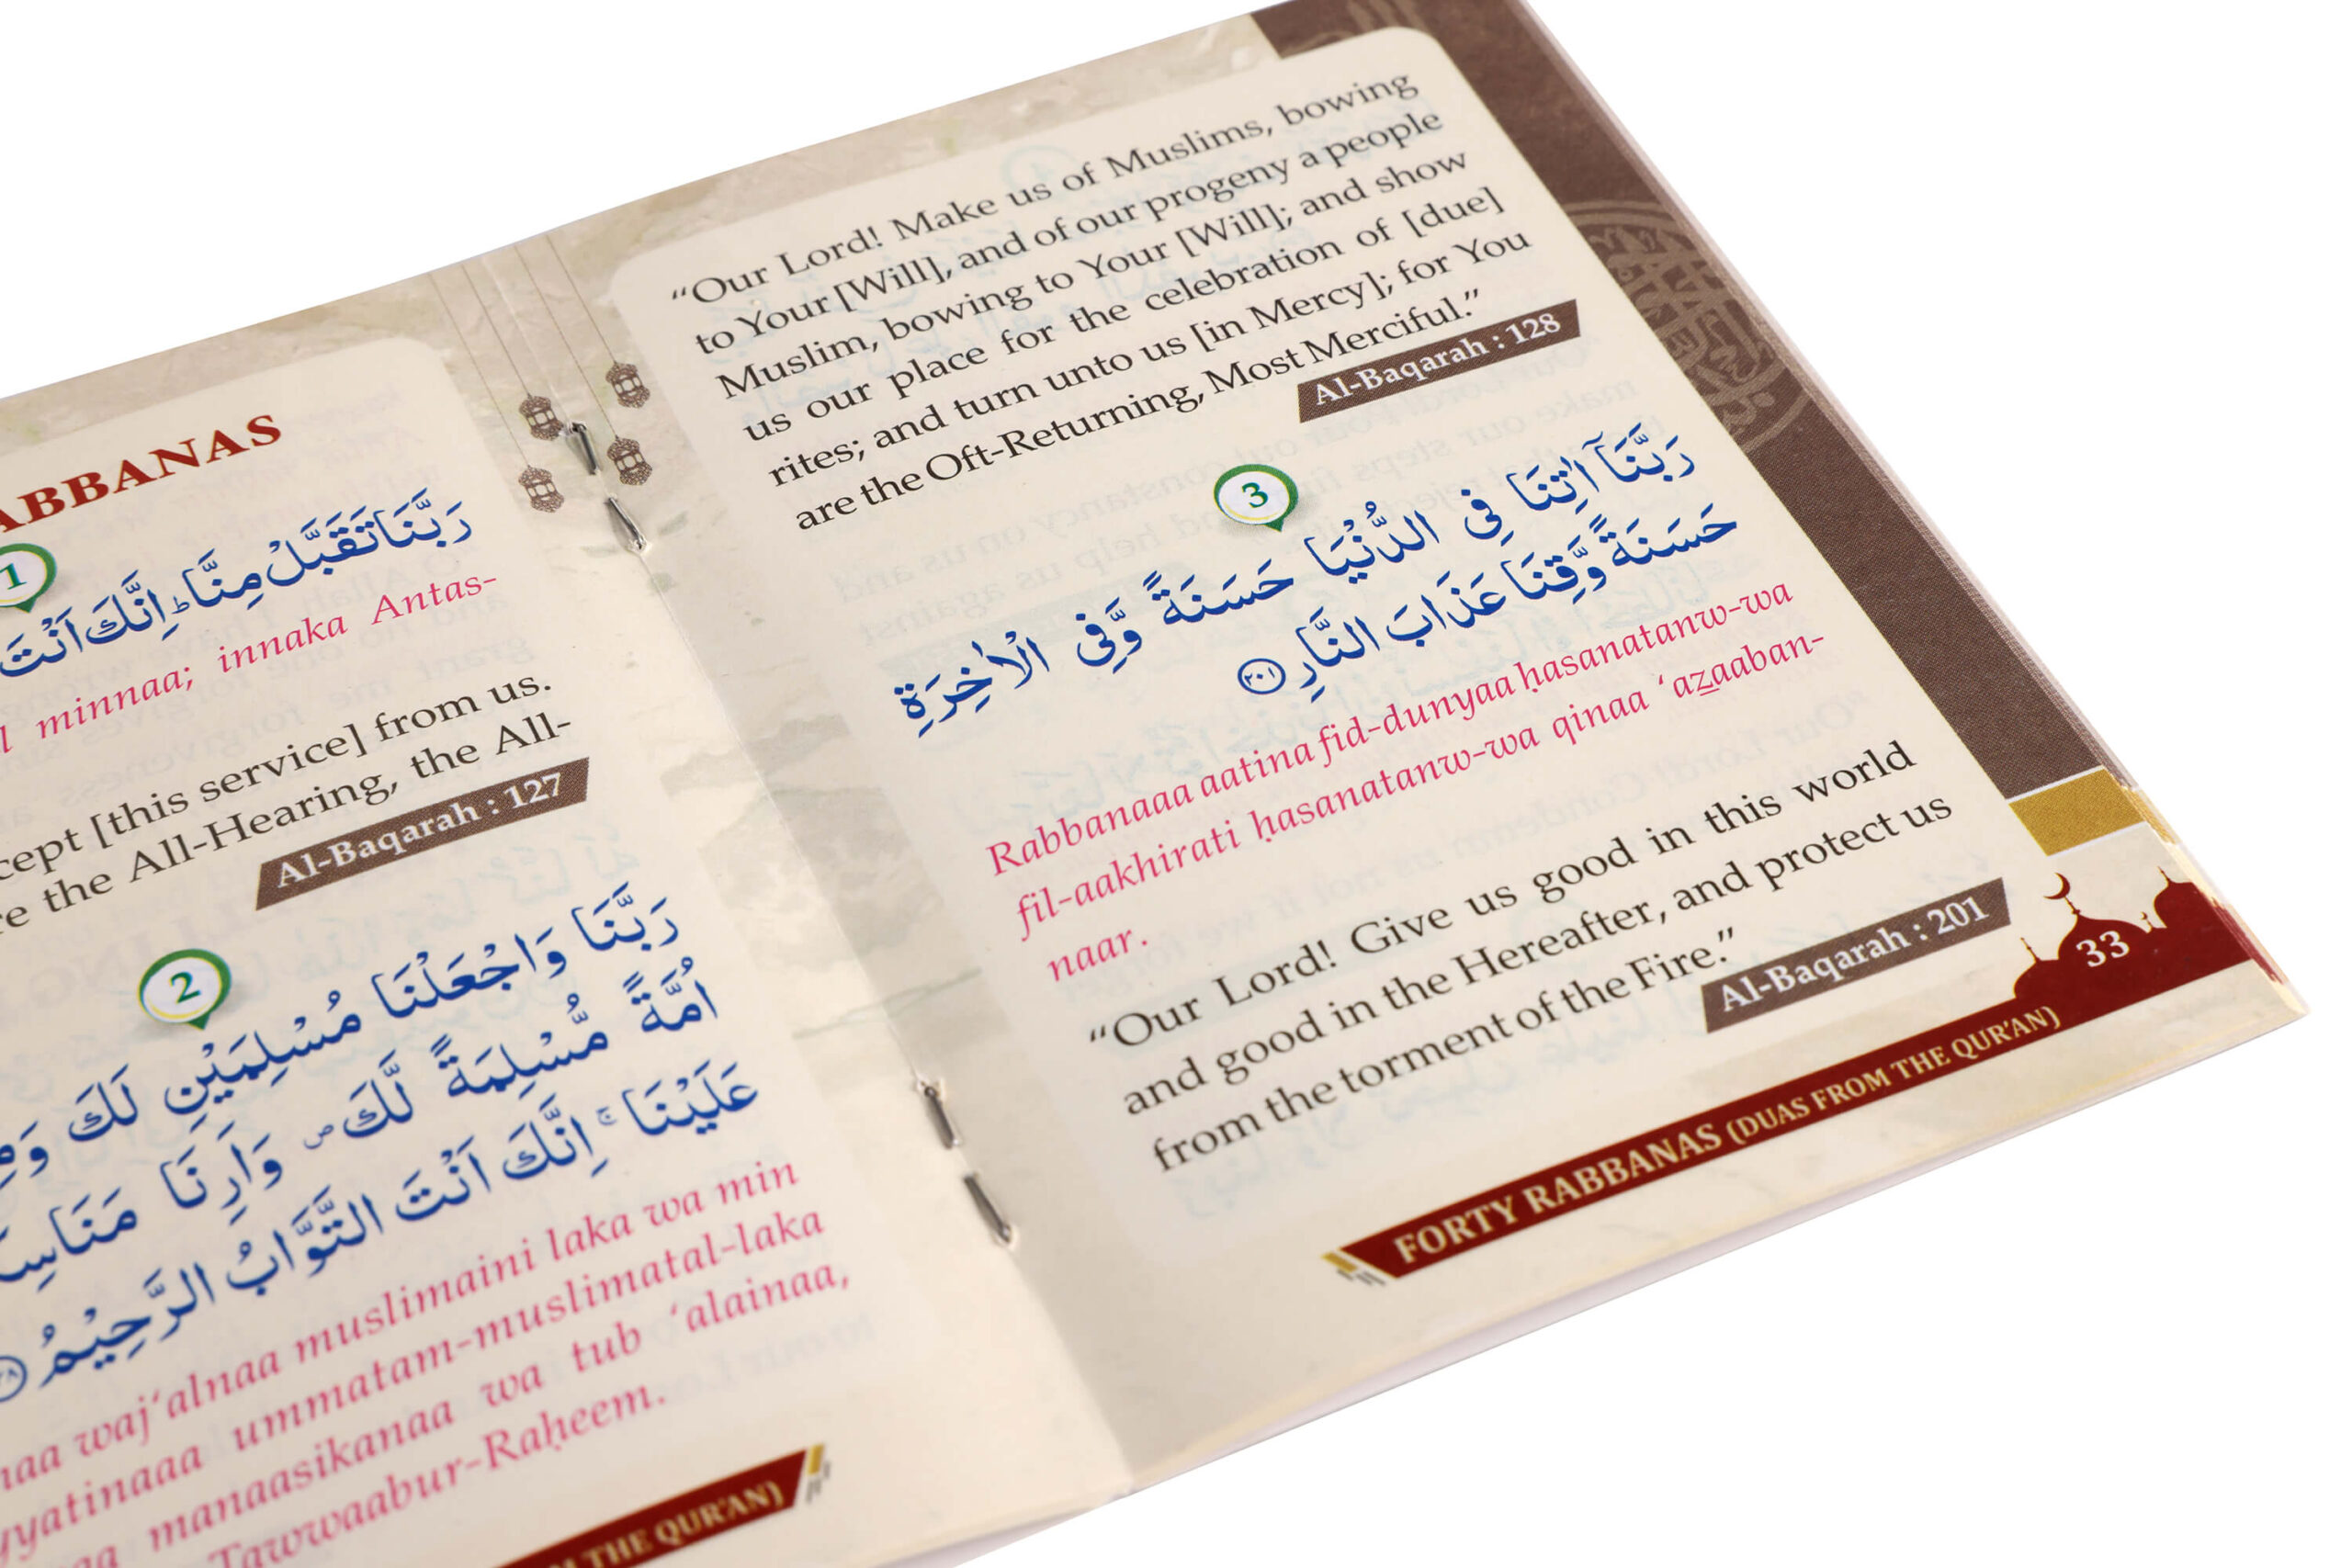 ABBANAS
1
رَبَّنَا تَقَبَّلْ مِنَّا ؕ اِنَّكَ اَنْتَ
minnaa; innaka Antas-
[this service] from us.
the All-Hearing, the All-
Al-Baqarah : 127
2
رَبَّنَا وَاجْعَلْنَا مُسْلِمَيْنِ لَكَ
اُمَّةً مُّسْلِمَةً لَّكَ ۪ وَاَرِنَا
عَلَيْنَا ۚ اِنَّكَ اَنْتَ التَّوَّابُ الرَّحِيْمُ
waj‘alnaa muslimaini laka wa min
ummatam-muslimatal-laka
manaasikanaa wa tub ‘alainaa,
Tawwaabur-Raḥeem.
THE QUR’AN)
“Our Lord! Make us of Muslims, bowing
to Your [Will], and of our progeny a people
Muslim, bowing to Your [Will]; and show
us our place for the celebration of [due]
rites; and turn unto us [in Mercy]; for You
are the Oft-Returning, Most Merciful.”
Al-Baqarah : 128
3
رَبَّنَآ اٰتِنَا فِى الدُّنْيَا حَسَنَةً وَّفِى الْاٰخِرَةِ
حَسَنَةً وَّقِنَا عَذَابَ النَّارِ ﴿۲۰۱﴾
Rabbanaaa aatina fid-dunyaa ḥasanatanw-wa
fil-aakhirati ḥasanatanw-wa qinaa ‘az̲aaban-
naar.
“Our Lord! Give us good in this world
and good in the Hereafter, and protect us
from the torment of the Fire.”
Al-Baqarah : 201
33
FORTY RABBANAS (DUAS FROM THE QUR’AN)